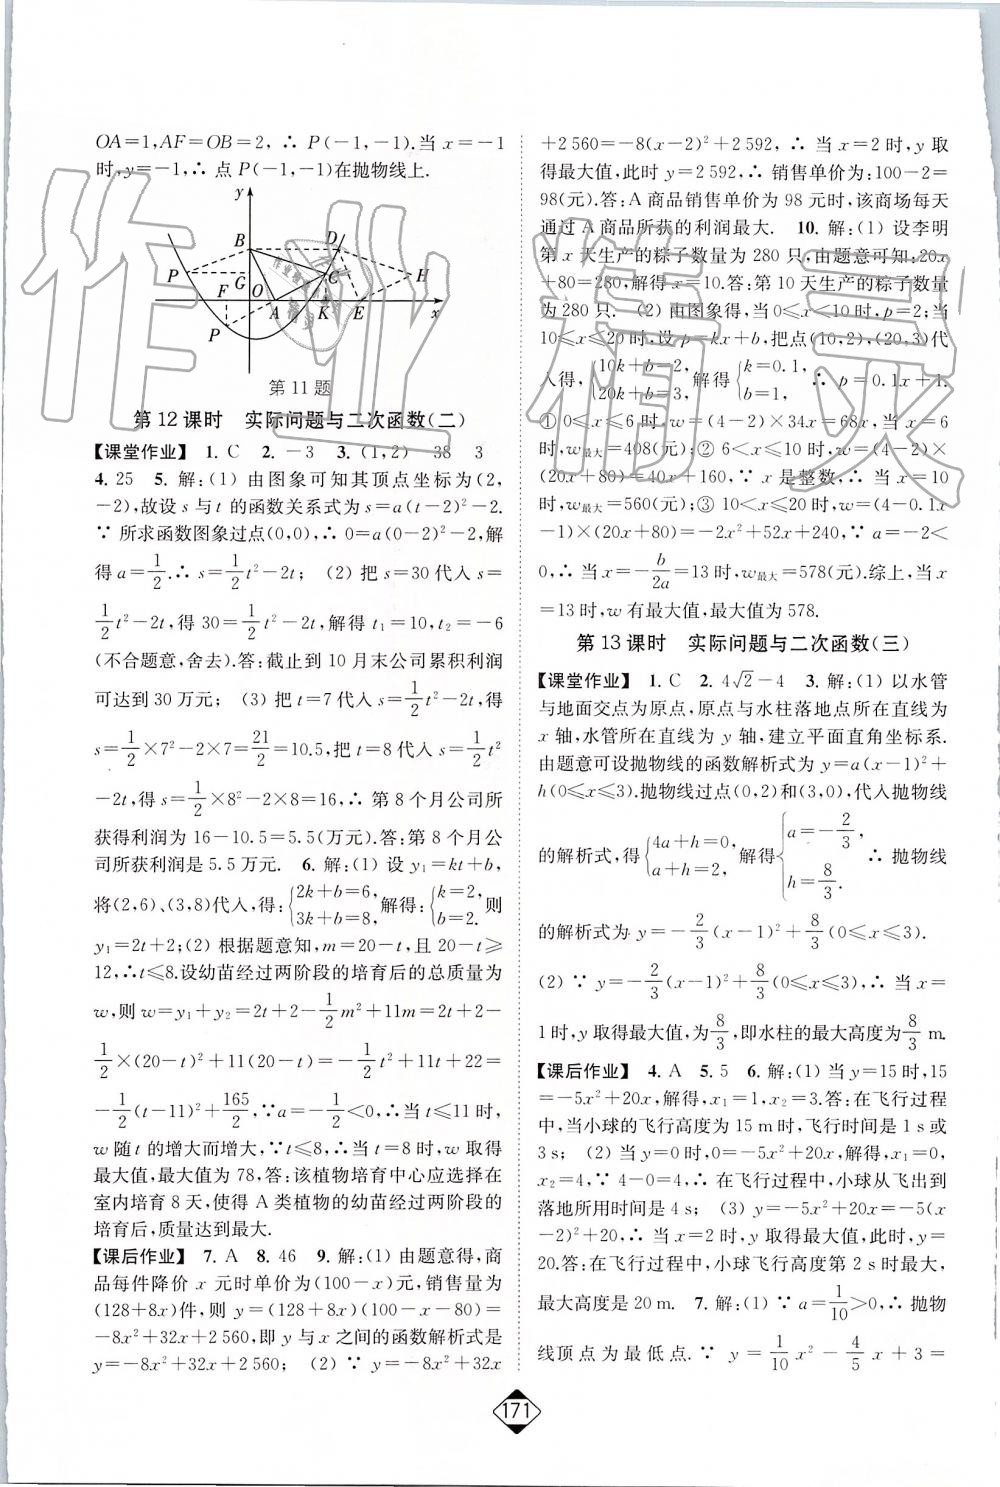 OA=1,AF=OB=2, ∴ P(-1,-1).当 x=-1
时,y=-1,∴ 点 P(-1,-1)在抛物线上.
y
B
D
P
G
C
H
F
O
A
K
E
x
P
第11题
第12课时 实际问题与二次函数(二)
【课堂作业】 1. C 2. -3 3. (1,2) 38 3
4. 25 5. 解:(1) 由图象可知其顶点坐标为(2,
-2),故设 s 与 t 的函数关系式为 s=a(t-2)²-2.
∵ 所求函数图象过点(0,0),∴ 0=a(0-2)²-2,解
得 a=1/2.∴ s=1/2t²-2t; (2) 把 s=30 代入 s=
1/2t²-2t,得 30=1/2t²-2t,解得 t₁=10,t₂=-6
(不合题意,舍去).答:截止到 10 月末公司累积利润
可达到 30 万元; (3) 把 t=7 代入 s=1/2t²-2t,得
s=1/2×7²-2×7=21/2=10.5,把 t=8 代入 s=1/2t²
-2t,得 s=1/2×8²-2×8=16,∴ 第 8 个月公司所
获得利润为 16-10.5=5.5(万元).答:第 8 个月公
司所获利润是 5.5 万元. 6. 解:(1) 设 y₁=kt+b,
将(2,6)、(3,8)代入,得:{2k+b=6, 3k+b=8, 解得:{k=2, b=2. 则
y₁=2t+2;(2) 根据题意知,m=20-t,且 20-t≥
12,∴t≤8.设幼苗经过两阶段的培育后的总质量为
w,则 w=y₁+y₂=2t+2-1/2m²+11m=2t+2-
1/2×(20-t)²+11(20-t)=-1/2t²+11t+22=
-1/2(t-11)²+165/2,∵a=-1/2<0,∴当 t≤11 时,
w 随 t 的增大而增大,∵t≤8,∴当 t=8 时,w 取得
最大值,最大值为 78,答:该植物培育中心应选择在
室内培育 8 天,使得 A 类植物的幼苗经过两阶段的
培育后,质量达到最大.
【课后作业】 7. A 8. 46 9. 解:(1) 由题意得,商
品每件降价 x 元时单价为(100-x)元,销售量为
(128+8x)件,则 y=(128+8x)(100-x-80)=
-8x²+32x+2 560,即 y 与 x 之间的函数解析式是
y=-8x²+32x+2 560; (2) ∵ y=-8x²+32x
+2 560=-8(x-2)²+2 592,∴ 当 x=2 时,y 取
得最大值,此时 y=2 592,∴ 销售单价为:100-2=
98(元).答:A 商品销售单价为 98 元时,该商场每天
通过 A 商品所获的利润最大. 10. 解:(1) 设李明
第 x 天生产的粽子数量为 280 只,由题意可知:20x
+80=280,解得 x=10.答:第 10 天生产的粽子数量
为 280 只. (2) 由图象得,当 0≤x<10 时,p=2;当
10≤x≤20 时,设 p=kx+b,把点(10,2),(20,3)代
入得,{10k+b=2, 20k+b=3, 解得{k=0.1, b=1, ∴ p=0.1x+1.
① 0≤x≤6 时,w=(4-2)×34x=68x,当 x=6
时,w最大=408(元);② 6<x≤10 时,w=(4-2)×
(20x+80)=40x+160,∵ x 是整数,∴ 当 x=10
时,w最大=560(元);③ 10<x≤20 时,w=(4-0.1x
-1)×(20x+80)=-2x²+52x+240,∵ a=-2<
0,∴ 当 x=-b/2a=13 时,w最大=578(元).综上,当 x
=13 时,w 有最大值,最大值为 578.
第13课时 实际问题与二次函数(三)
【课堂作业】 1. C 2. 4√2-4 3. 解:(1) 以水管
与地面交点为原点,原点与水柱落地点所在直线为
x 轴,水管所在直线为 y 轴,建立平面直角坐标系.
由题意可设抛物线的函数解析式为 y=a(x-1)²+
h(0≤x≤3).抛物线过点(0,2)和(3,0),代入抛物线
的解析式,得{4a+h=0, a+h=2, 解得{a=-2/3, h=8/3. ∴ 抛物线
的解析式为 y=-2/3(x-1)²+8/3(0≤x≤3).
(2) ∵ y=-2/3(x-1)²+8/3(0≤x≤3),∴ 当 x=
1时,y 取得最大值,为8/3,即水柱的最大高度为8/3 m.
【课后作业】 4. A 5. 5 6. 解:(1) 当 y=15 时,15
=-5x²+20x,解得,x₁=1,x₂=3.答:在飞行过程
中,当小球的飞行高度为 15 m 时,飞行时间是 1 s 或
3 s; (2) 当 y=0 时,0=-5x²+20x,解得,x₁=0,
x₂=4,∵ 4-0=4,∴ 在飞行过程中,小球从飞出到
落地所用时间是 4 s; (3) y=-5x²+20x=-5(x
-2)²+20,∴ 当 x=2 时,y 取得最大值,此时,y=
20.答:在飞行过程中,小球飞行高度第 2 s 时最大,
最大高度是 20 m. 7. 解:(1) ∵ a=1/10>0,∴ 抛物
线顶点为最低点.∵ y=1/10x²-4/5x+3=
171
作业精灵